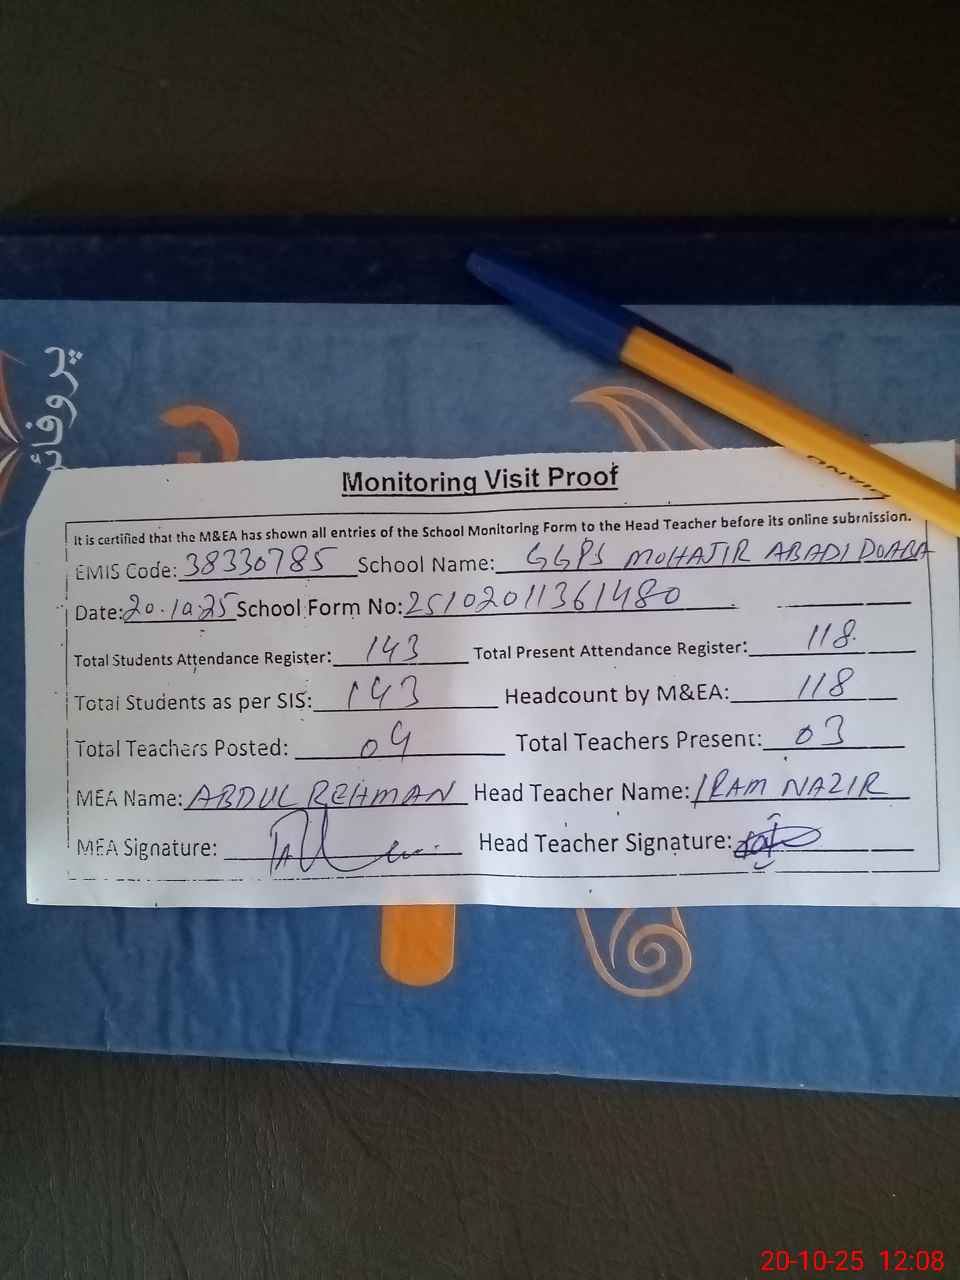 پروفائل
PIANO
Monitoring Visit Proof
It is certified that the M&EA has shown all entries of the School Monitoring Form to the Head Teacher before its online submission.
EMIS Code: 38330785 School Name: GGPS MOHAJIR ABADI DOABA
Date: 20.10.25 School Form No: 25102011361480
Total Students Attendance Register: 143 Total Present Attendance Register: 118
Total Students as per SIS: 143 Headcount by M&EA: 118
Total Teachers Posted: 04 Total Teachers Present: 03
MEA Name: ABDUL REHMAN Head Teacher Name: IRAM NAZIR
MEA Signature: Head Teacher Signature:
20-10-25 12:08